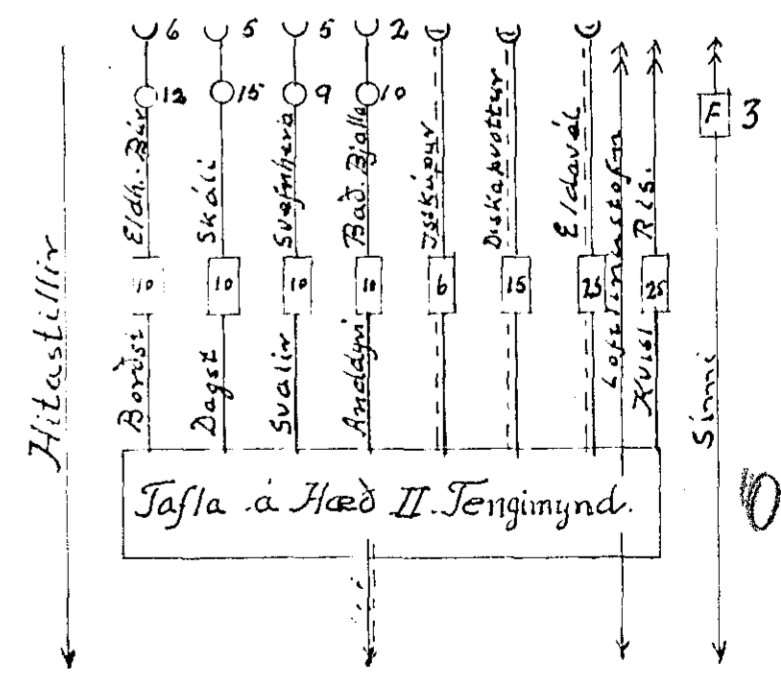 6 5 5 2
12 15 9 10
Eldh. Búr
Skáli
Svefnherb
Bað. Bjalla
Ísskápur
Diskaþvottur
Eldavél
Loftlínustofn
Rís.
F 3
10 10 10 10 6 15 25 25
Hitastillir
Borðst
Dagst
Svalir
Anddyri
Kvísl
Sími
Tafla á Hæð II. Tengimynd.